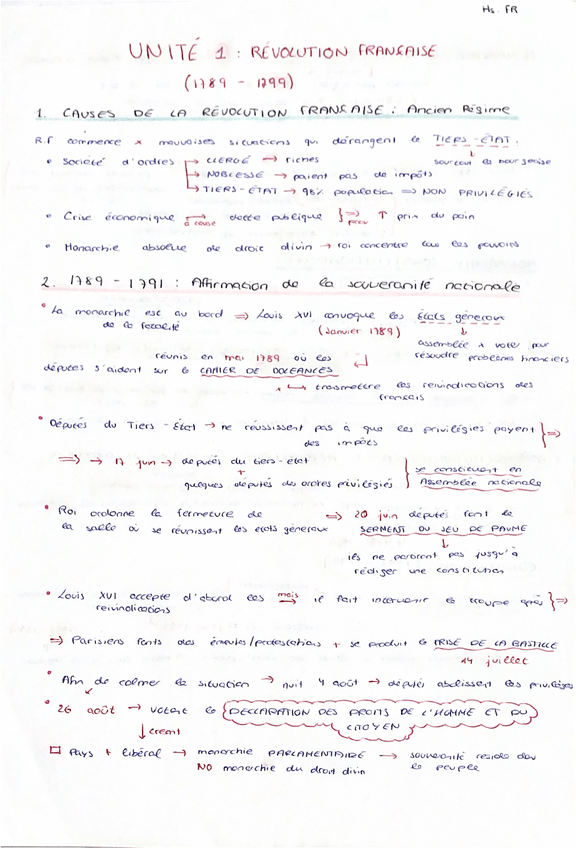 Hs. FR
UNITÉ 1 : RÉVOLUTION FRANCAISE
(1789 - 1799)
1. CAUSES DE LA RÉVOLUTION FRANCAISE : Ancien Régime
R.F commence x mauvaises situations qui dérangent le TIERS-ÉTAT.
surtout la bourgeoisie
• Société d'ordres → CLERGÉ → riches
→ NOBLESSE → paient pas de impôts
→ TIERS-ÉTAT → 98% population ⇒ NON PRIVILÉGIÉS
• Crise économique → à cause dette publique } ⇒ prov ↑ prix du pain
• Monarchie absolue de droit divin → roi concentre tous les pouvoirs
2. 1789 - 1791 : Affirmation de la souveranité nationale
• La monarchie est au bord ⇒ Louis XVI convoque les États généraux
de la fiscalité (Janvier 1789)
assemblée x voter pour
résoudre problèmes financiers
réunis en mai 1789 où les
députés s'aident sur le CAHIER DE DOLÉANCES
x → transmettre les reivindications des
français
• Députés du Tiers-État → ne réussissent pas à que les privilégies payent } ⇒
des impôts
⇒ → 17 juin → députés du tiers-état
+
quelques députés des ordres privilégiés } se constituent en
Assemblée nationale
• Roi ordonne la fermeture de ⇒ 20 juin députés font le
la salle où se réunissent les états généraux SERMENT DU JEU DE PAUME
ils ne pararont pas jusqu'à
rédiger une constitution
• Louis XVI accepte d'abord les mais ⇒ il fait intervenir la troupe après } ⇒
reivindications
⇒ Parisiens fonts des émeutes/protestations + se produit la PRISE DE LA BASTILLE
14 juillet
• Afin de calmer la situation → nuit 4 août → députés abolissent les privilèges
• 26 août → votent la DECLARATION DES DROITS DE L'HOMME ET DU
CITOYEN
↓ créent
□ Pays + libéral → monarchie PARLEMENTAIRE → souveranité reside dou
NO monarchie du droit divin le peuple